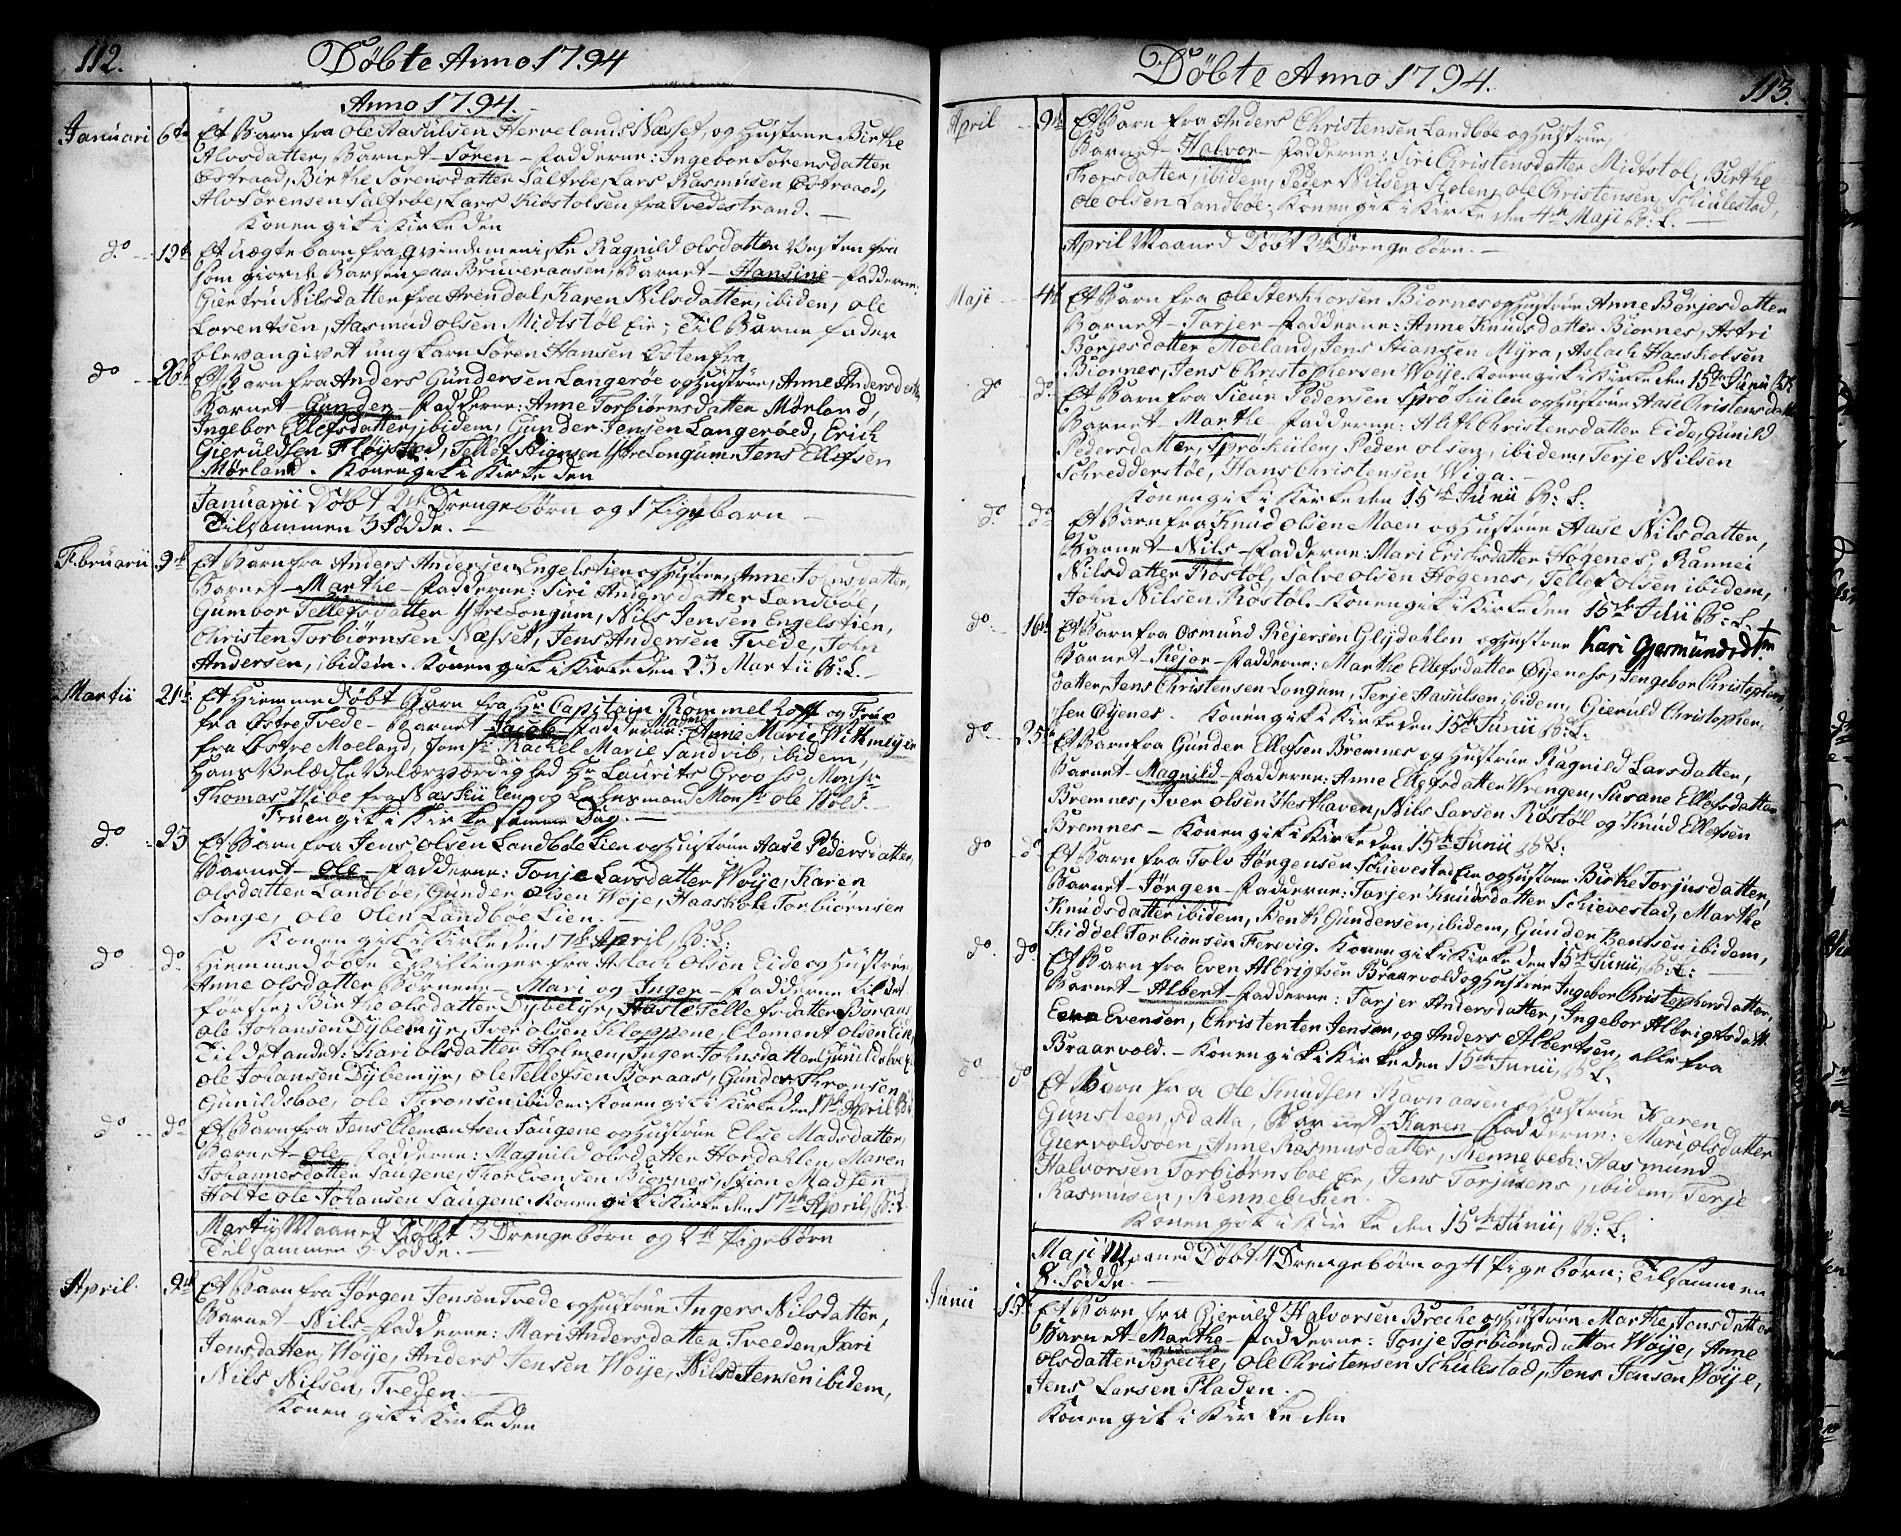 112.
Döbte Anno 1794
Anno 1794.
Januari 6te Et Barn fra Ole Aasulsen Hervelands Næsset, og Hustrue Birthe
Alvsdatter, Barnet - Sören - Fadderne: Ingebor Sörensdatter
Östraad, Birthe Sörensdatter Saltröe, Lars Rasmusen Östraad,
Alv Sörensen Saltröe, Lars Kiöstolsen fra Tvedestrand. -
Konen gik i Kirke den
do 19de Et uægte barn fra qvindemeniske Ragnild Olsdatter Vesten fra
som giorde Barsen paa Bruveraasen, Barnet - Hansine - Fadderne:
Giertru Nilsdatter fra Arendal, Karen Nilsdatter, ibiden, Ole
Lorentsen, Aasmud Olsen Midtstöl Eie; Til Barne fader
blev angivet ung karn Sören Hansen Östenfra
do 26de Et Barn fra Anders Gundersen Langeröe og Hustrue, Anne Andersdatter
Barnet - Gunder - Fadderne: Anne Torbiörnsdatter Mörland,
Ingebor Ellefsdatter, ibidem, Gunder Jensen Langeröed, Erich
Gieruldsen Flöistad, Tellef Stiansen Yttre Longum, Jens Ellefsen
Mörland. Konen gik i Kirke den
Januarii Döbt 2de Drengebörn og 1 Pigebarn -
Tilsammen 3 Födde. -
Februarii 9de Et Barn fra Anders Andersen Engelstien og Hustrue, Anne Johnsdatter,
Barnet - Marthe - Fadderne: Siri Andersdatter Landböe,
Gumbor Tellefsdatter Yttre Longum, Nils Jensen Engelstien,
Christen Torbiörnsen Næsset, Jens Andersen Tvede, John
Andersen, ibidem. Konen gik i Kirke den 23 Martii B: L. -
Martii 21de Et Hiemme Döbt Barn fra Hr Capitain Rommelhoff og Frue
fra Östre Tvede - Barnet Jacob - Fadderne: Madme Anne Marie Withmeyer
fra Östre Moeland, Jomfr Rachel Marie Sandvib, ibidem,
Hans Velædle Velærværdighed Hr Laurits Grooss, Monsr
Thomas Vibe fra Naskilen og Lehnsmand Monsr Ole Bold. -
Fruen gik i Kirke samme Dag. -
do 23 Et Barn fra Jens Olsen Landböe Lien og Hustrue Aase Pedersdatter,
Barnet - Ole - Fadderne: Tonje Larsdatter Woije, Karen
Olsdatter Landböe, Gunder Olsen Woje, Haaskol Torbiörnsen
Songe, Ole Olen Landboe Lien. -
Konen gik i Kirke den 17de April, B: L:
do do Hiemmedöbte Tvillinger fra Aslach Olsen Eide og Hustrue
Anne Olsdatter Börnene - Mari og Inger - Fadderne til det
förste: Birthe Olsdatter Dybemyr, Aaste Tellefsdatter Boraas
Ole Johansen Dybemyr, Iver Olsen Kloppene, Clement Olsen Eide,
Til det andet: Kari Olsdatter Holmen, Inger Johnsdatter Gunildsboe
Ole Johansen Dybemyr, Ole Tellefsen Boraas, Gunder Thronsen
Gunildsboe, Ole Thronsen ibidem Konen gik i Kirke den 17de April B: L
do do Et Barn fra Jens Clementsen Saugene og Hustrue Else Madsdatter,
Barnet - Ole - Fadderne: Magnild Olsdatter Hordahlen, Maren
Johannesdatter Saugene, Thor Evensen Biornes, Stian Madsen
Holte Ole Johansen Saugene Konen gik i Kirke den 17de April, B: L
Martij Maaned Döbt 3 Drengebörn og 2de Pigebörn
Tilsammen 5 Födde. -
April 9de Et Barn fra Jörgen Jensen Tvede og Hustrue Ingers Nilsdatter,
Barnet - Nils - Fadderne: Mari Andersdatter Tveeden, Kari
Jensdatter, Woije, Anders Jensen Woije, Nils Jensen ibidem,
Nils Nilsen, Tveden. -
Konen gik i Kirke den
Döbte Anno 1794.
113.
April 9de Et Barn fra Anders Christensen Landböe og Hustrue,
Barnet - Halvor - Fadderne: Siri Christensdatter Midtstöl, Birthe
Thorsdatter, ibidem, Peder Nilsen Stolen, Ole Christensen, Schiulestad,
Ole Olsen Landböe. Konen gik i Kirke den 4de Maji B: L. -
April Maaned Döbt 2de Drengebörn. -
Maji 4de Et Barn fra Ole Sterkhorsen Biornes og Hustrue Anne Börjesdatter
Barnet - Tarjer - Fadderne: Anne Knudsdatter Biornes, Astri
Börjesdatter Moeland, Jens Stiansen Myra, Aslach Haaskolsen
Biornes, Jens Christophersen Woije. Konen gik i Kirke den 15de Junii B: L
do do Et Barn fra Sieur Pedersen Sprökilen og Hustrue Aase Christensdatter
Barnet - Marthe - Fadderne: Alith Christensdatter Eide, Gunild
Pedersdatter, Sprökilen, Peder Olsen, ibidem, Terje Nilsen
Schredderstöe, Hans Christensen Wiga. -
Konen gik i Kirke den 15de Junii B: L.
do do Et Barn fra Knud Olsen Moen og Hustrue Aase Nilsdatter,
Barnet - Nils - Fadderne: Mari Erichsdatter Högenes, Rannei
Nilsdatter Röstöl, Salve Olsen Högenes, Tellef Olsen ibidem,
John Nilsen Röstöl. Konen gik i Kirke den 15de Julii B: L.
do 16de Et Barn fra Osmund Rejersen Glijdahlen og Hustrue Kari Gjermundsdtr.
Barnet - Rejor - Fadderne: Marthe Ellefsdatter Öijeness, Jengebor Christophers
datter, Jens Christensen Longum, Terje Aasulsen, ibidem, Gieruld Christopher
sen Öijenes. Konen gik i Kirke den 15de Junii B: L.
do 25de Et Barn fra Gunder Ellefsen Bremnes og Hustrue Ragnild Larsdatter,
Barnet - Magnild - Fadderne: Anne Ellefsdatter Wrengen, Susane Ellefsdatter
Bremnes, Iver Olsen Hesthaven, Nils Larsen Röstöl og Knud Ellefsen
Bremnes - Konen gik i Kirke den 15de Junii B: L:
do do Et Barn fra Tolv Jörgensen Schievestad Eie og Hustrue Birthe Torjusdatter,
Barnet - Jörgen - Fadderne: Tarjer Knudsdatter Schievestad, Marthe
Knudsdatter ibidem, Benth Gundersen, ibidem, Gunder Bentsen ibidem,
Kiddel Torbiönsen Ferevig. Konen gik i Kirke den 15de Junii, B: L: -
do do Et Barn fra Even Albrigtsen Braarvold og Hustrue Ingebor Christophersdatter,
Barnet - Albert - Fadderne: Tarjer Andersdatter, Ingebor Albrigtsdatt
Evensen, Christenten Jensen, og Anders Albertsen, alle fra
Braarvold. - Konen gik i Kirke den 15de Junii, B: L.
do do Et Barn fra Ole Knudsen Ravnaasen og Hustrue Karen
Gunsteensdatter, Barnet - Karen - Fadderne: Mari Olsdatter
Giervoldsöen, Anne Rasmusdatter, Rennebech: Aasmund
Halvorsen Torbiörnsboe Eie, Jens Torjusens, ibidem, Terje
Rasmusen, Rennebechen.
Konen gik i Kirke den 15de Junii, B: L:
Maji Maaned Döbt 4 Drengebörn og 4 Pigebörn; Tilsammen
8. Födde. -
Junii 15de Et Barn fra Gieruld Halvorsen Breche og Hustrue Marthe Jensdatter,
Barnet - Marthe - Fadderne: Tonje Torbiönsdatter Woije, Anne
Olsdatter Breche, Ole Christensen Schulestad, Jens Jensen Woije,
Jens Larsen Fladen.
Konen gik i Kirke den